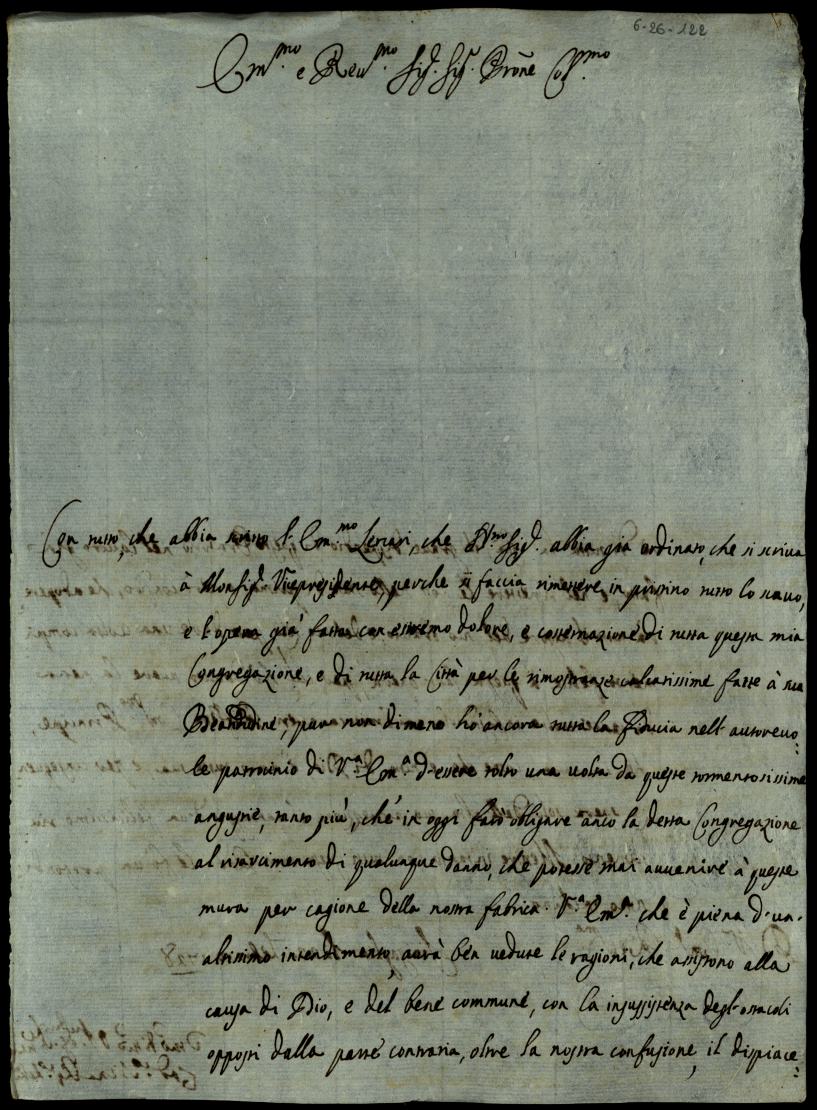 6-26-122
Em.mo e Reu.mo Sig.r Sig.r Prōne Col.mo
Con tutto, che abbia scritto l'Em.mo Lercari, che N.ro Sig.re abbia gia ordinato, che si scriva
à Monsig.r Vicepresidente, perche si faccia rimettere in pristino tutto lo scavo,
e l'opera già fatta con estremo dolore, e costernazione di tutta questa mia
Congregazione, e di tutta la Città per le rimostranze calcatissime fatte à sua
Beatitudine, pure non di meno hò ancora tutta la fiducia nell'autorevo:
le patrocinio di V.a Em.a d'essere tolto una volta da queste tormentosissime
angustie, tanto più, chè in oggi farò obligare anco la detta Congregazione
al risarcimento di qualunque danno, che potesse mai auuenire à queste
mura per cagione della nostra fabrica. V.a Em.a che è piena d'un-
altissimo intendimento, aurà ben vedute le ragioni, che assistono alla
causa di Dio, e del bene commune, con la insussistenza degl'ostacoli
opposti dalla parte contraria, oltre la nostra confusione, il dispiace: